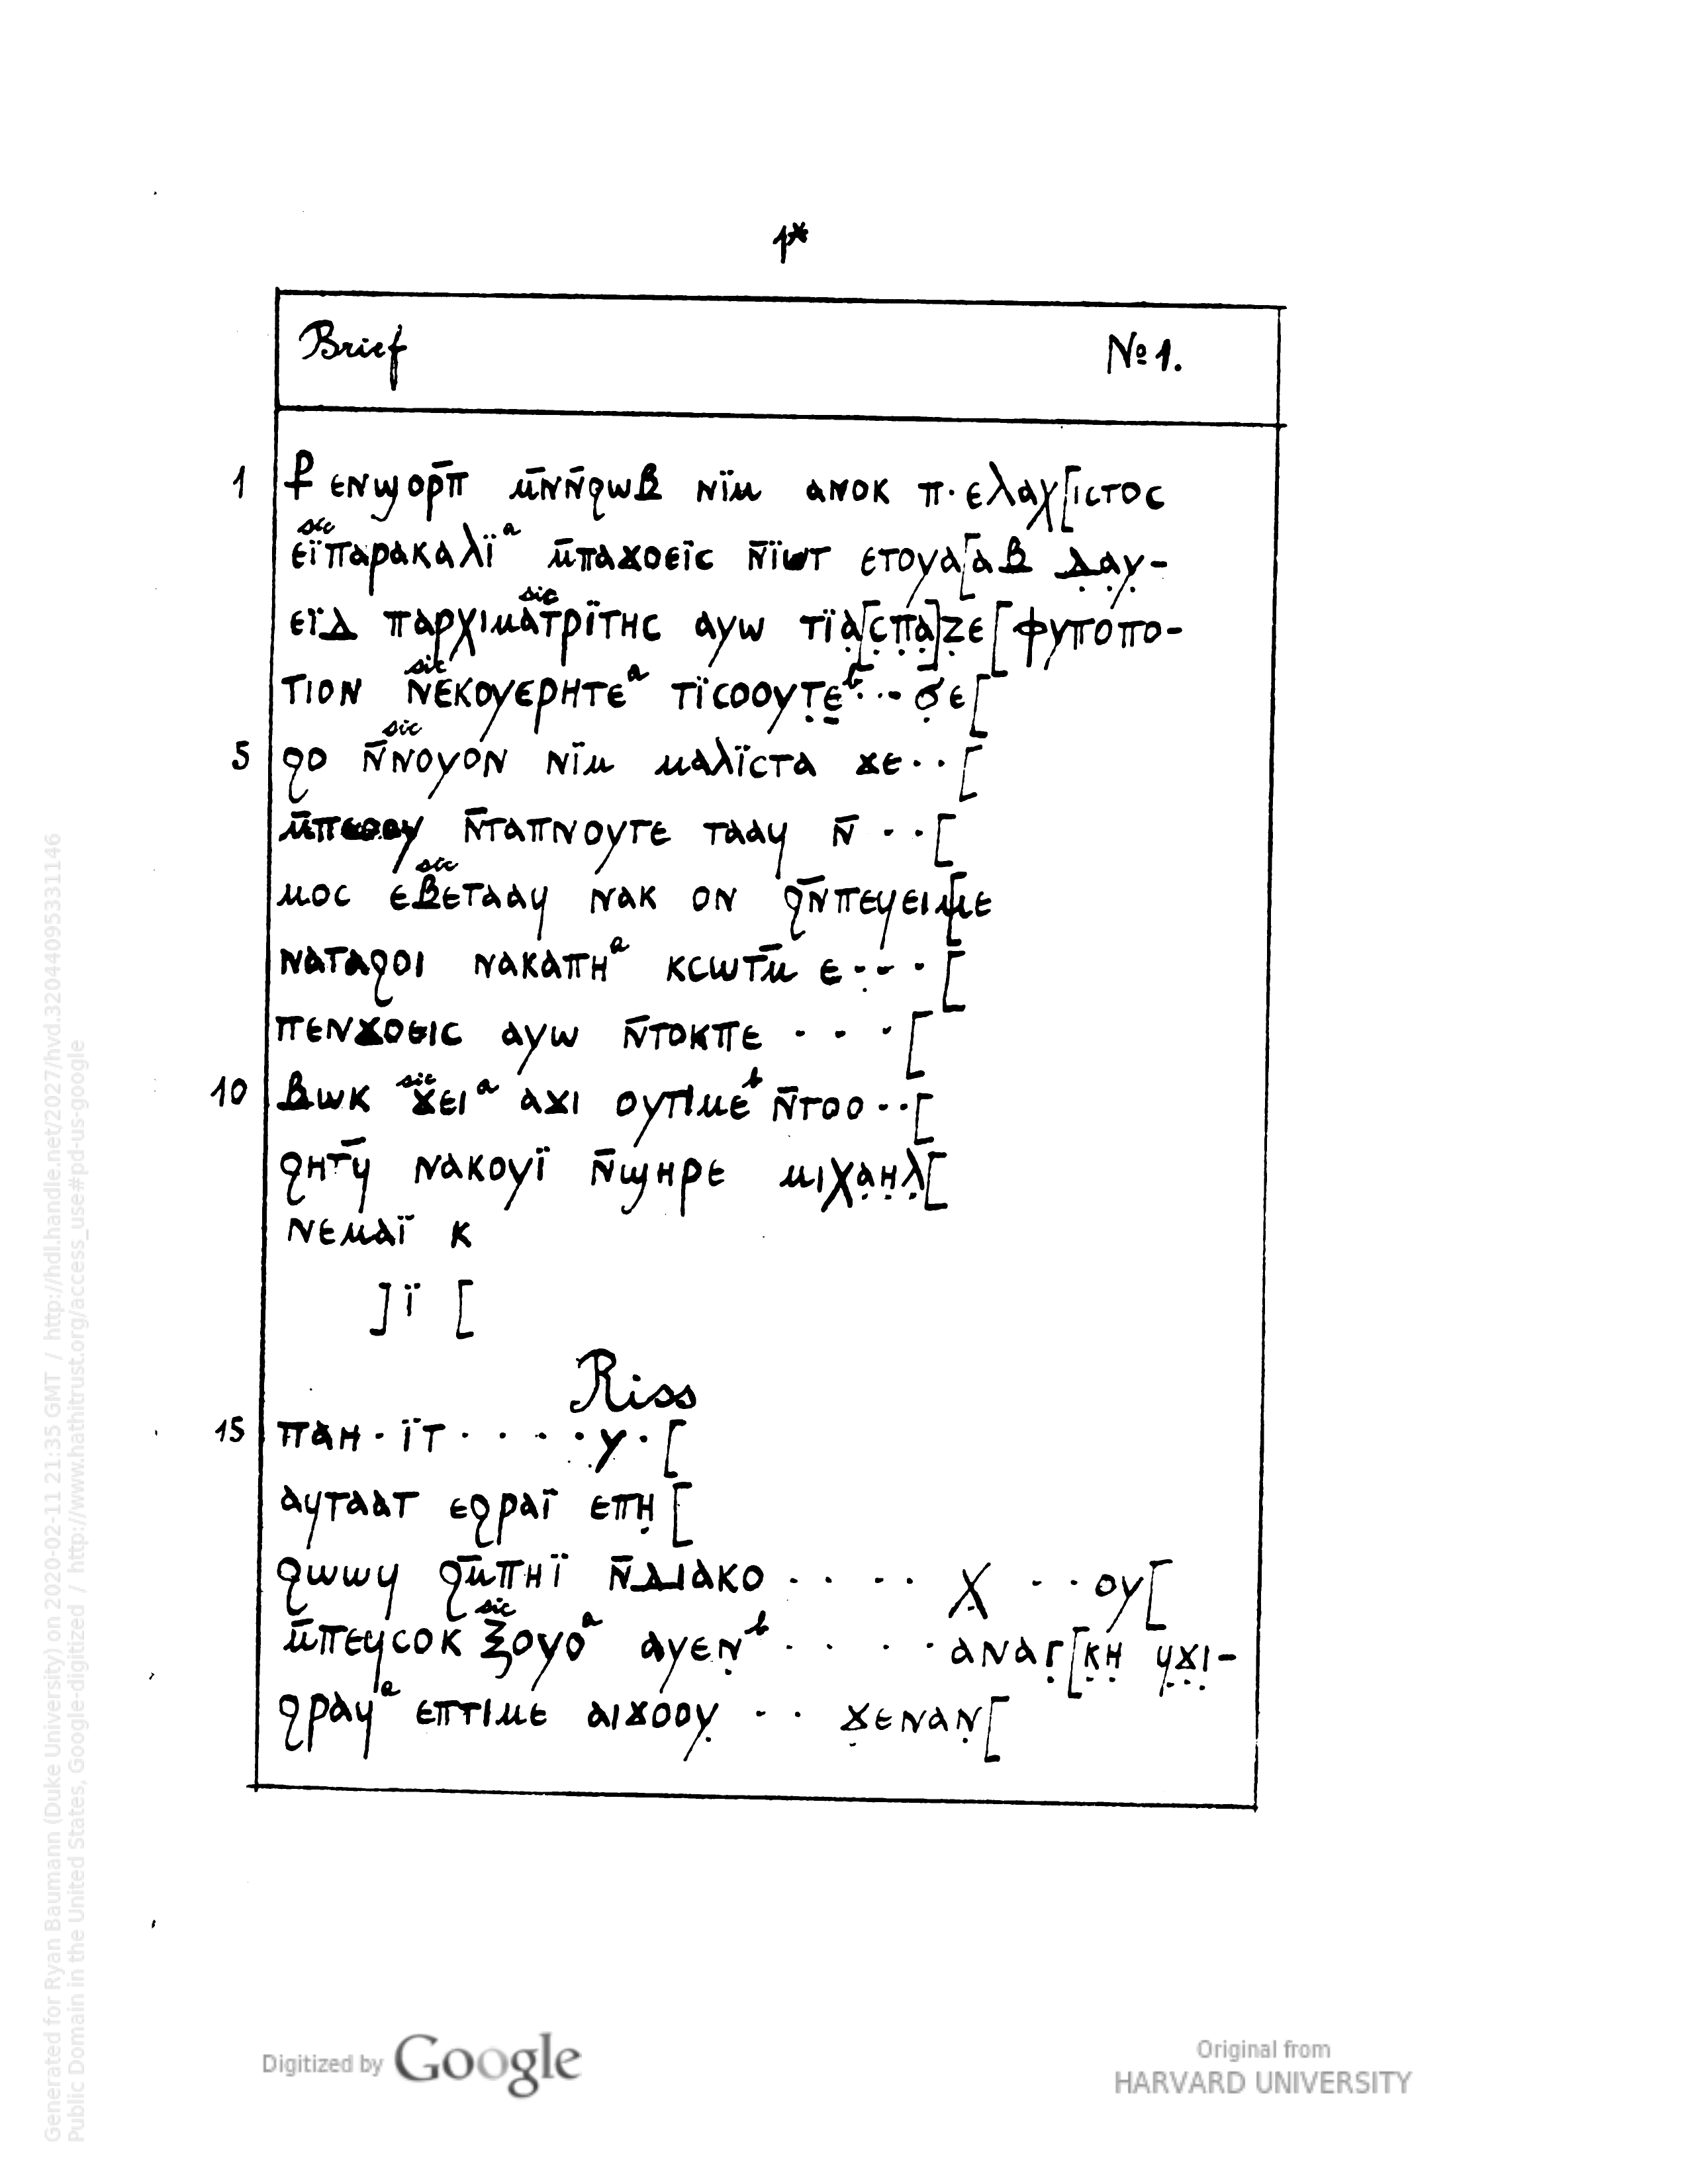 1*
Brief № 1.
1 ⳨ ⲉⲛϣⲟⲣⲡ̄ ⲙ̄ⲛⲛ̄ϩⲱⲃ ⲛⲓ̈ⲙ ⲁⲛⲟⲕ ⲡ·ⲉⲗⲁⲭ[ⲓⲥⲧⲟⲥ
sic
ⲉⲓ̈ⲡⲁⲣⲁⲕⲁⲗⲓ̈ᵃ ⲙ̄ⲡⲁϫⲟⲉⲓ̈ⲥ ⲛ̄ⲓ̈ⲱⲧ ⲉⲧⲟⲩⲁ[ⲁⲃ ⲇ̣ⲁ̣ⲩ̣-
sic
ⲉⲓ̈ⲇ ⲡⲁⲣⲭⲓⲙⲁⲧⲣⲓ̈ⲧⲏⲥ ⲁⲩⲱ ⲧⲓ̈ⲁ̣[ⲥ̣ⲡ̣ⲁ̣]ⲍ̣ⲉ[ⲫⲩⲡⲟⲡⲟ-
sic
ⲧⲓⲟⲛ ⲛ̄ⲉⲕⲟⲩⲉⲣⲏⲧⲉᵃ ⲧⲓ̈ⲥⲟⲟⲩⲧ̣ⲉ̣ᵇ··· ϭ̣ⲉ[
sic
5 ϩⲟ ⲛ̄ⲛⲟⲩⲟⲛ ⲛⲓ̈ⲙ ⲙⲁⲗⲓ̈ⲥⲧⲁ ϫⲉ··[
ⲙ̄ⲡⲉⲟⲟⲩ ⲛ̄ⲧⲁⲡⲛⲟⲩⲧⲉ ⲧⲁⲁϥ ⲛ̄ ··[
sic
ⲙⲟⲥ ⲉⲃⲉⲧⲁⲁϥ ⲛⲁⲕ ⲟⲛ ϩⲛ̄ⲡⲉϥⲉⲓ[ⲙⲉ
ⲛⲁⲧⲁϩⲟⲓ ⲛⲁⲕⲁⲡⲏᵃ ⲕⲥⲱⲧⲙ̄ ⲉ····[
ⲡⲉⲛϫⲟⲉⲓⲥ ⲁⲩⲱ ⲛ̄ⲧⲟⲕⲡⲉ ···[
sic
10 ⲃⲱⲕ ϫ̈ⲉⲓᵃ ⲁϫⲓ ⲟⲩⲧⲓⲙⲉᵇ ⲛ̄ⲧⲟⲟ··[
ϩⲏⲧϥ̄ ⲛⲁⲕⲟⲩⲓ̈ ⲛ̄ϣⲏⲣⲉ ⲙⲓⲭⲁ̣ⲏ̣ⲗ̣[
ⲛⲉⲙⲁⲓ̈ ⲕ
]ⲓ̈ [
Riss
15 ⲡⲁⲏ·ⲓ̈ⲧ·····ⲩ·[
ⲁϥⲧⲁⲁⲧ ⲉϩⲣⲁⲓ̈ ⲉⲡⲏ̣[
ϩⲱⲱϥ ϩⲙ̄ⲡⲏⲓ̈ ⲛ̄ⲇⲓⲁⲕⲟ···· ⲭ̣ ···ⲟⲩ[
sic
ⲙ̄ⲡⲉϥⲥⲟⲕ ⲝⲟⲩⲟᵃ ⲁϥⲉⲛ̣ᵇ ····ⲁⲛⲁⲅ̣[ⲕ̣ⲏ̣ ϥ̣ϫ̣ⲓ̣-
ϩⲣⲁϥᵃ ⲉⲡⲧⲓⲙⲉ ⲁⲓϫⲟⲟⲩ̣ ·· ϫ̣ⲉⲛⲁⲛ̣[
Digitized by Google
Original from
HARVARD UNIVERSITY
Generated for Ryan Baumann (Duke University) on 2020-02-11 21:35 GMT / http://hdl.handle.net/2027/hvd.32044095331146
Public Domain in the United States, Google-digitized / http://www.hathitrust.org/access_use#pd-us-google